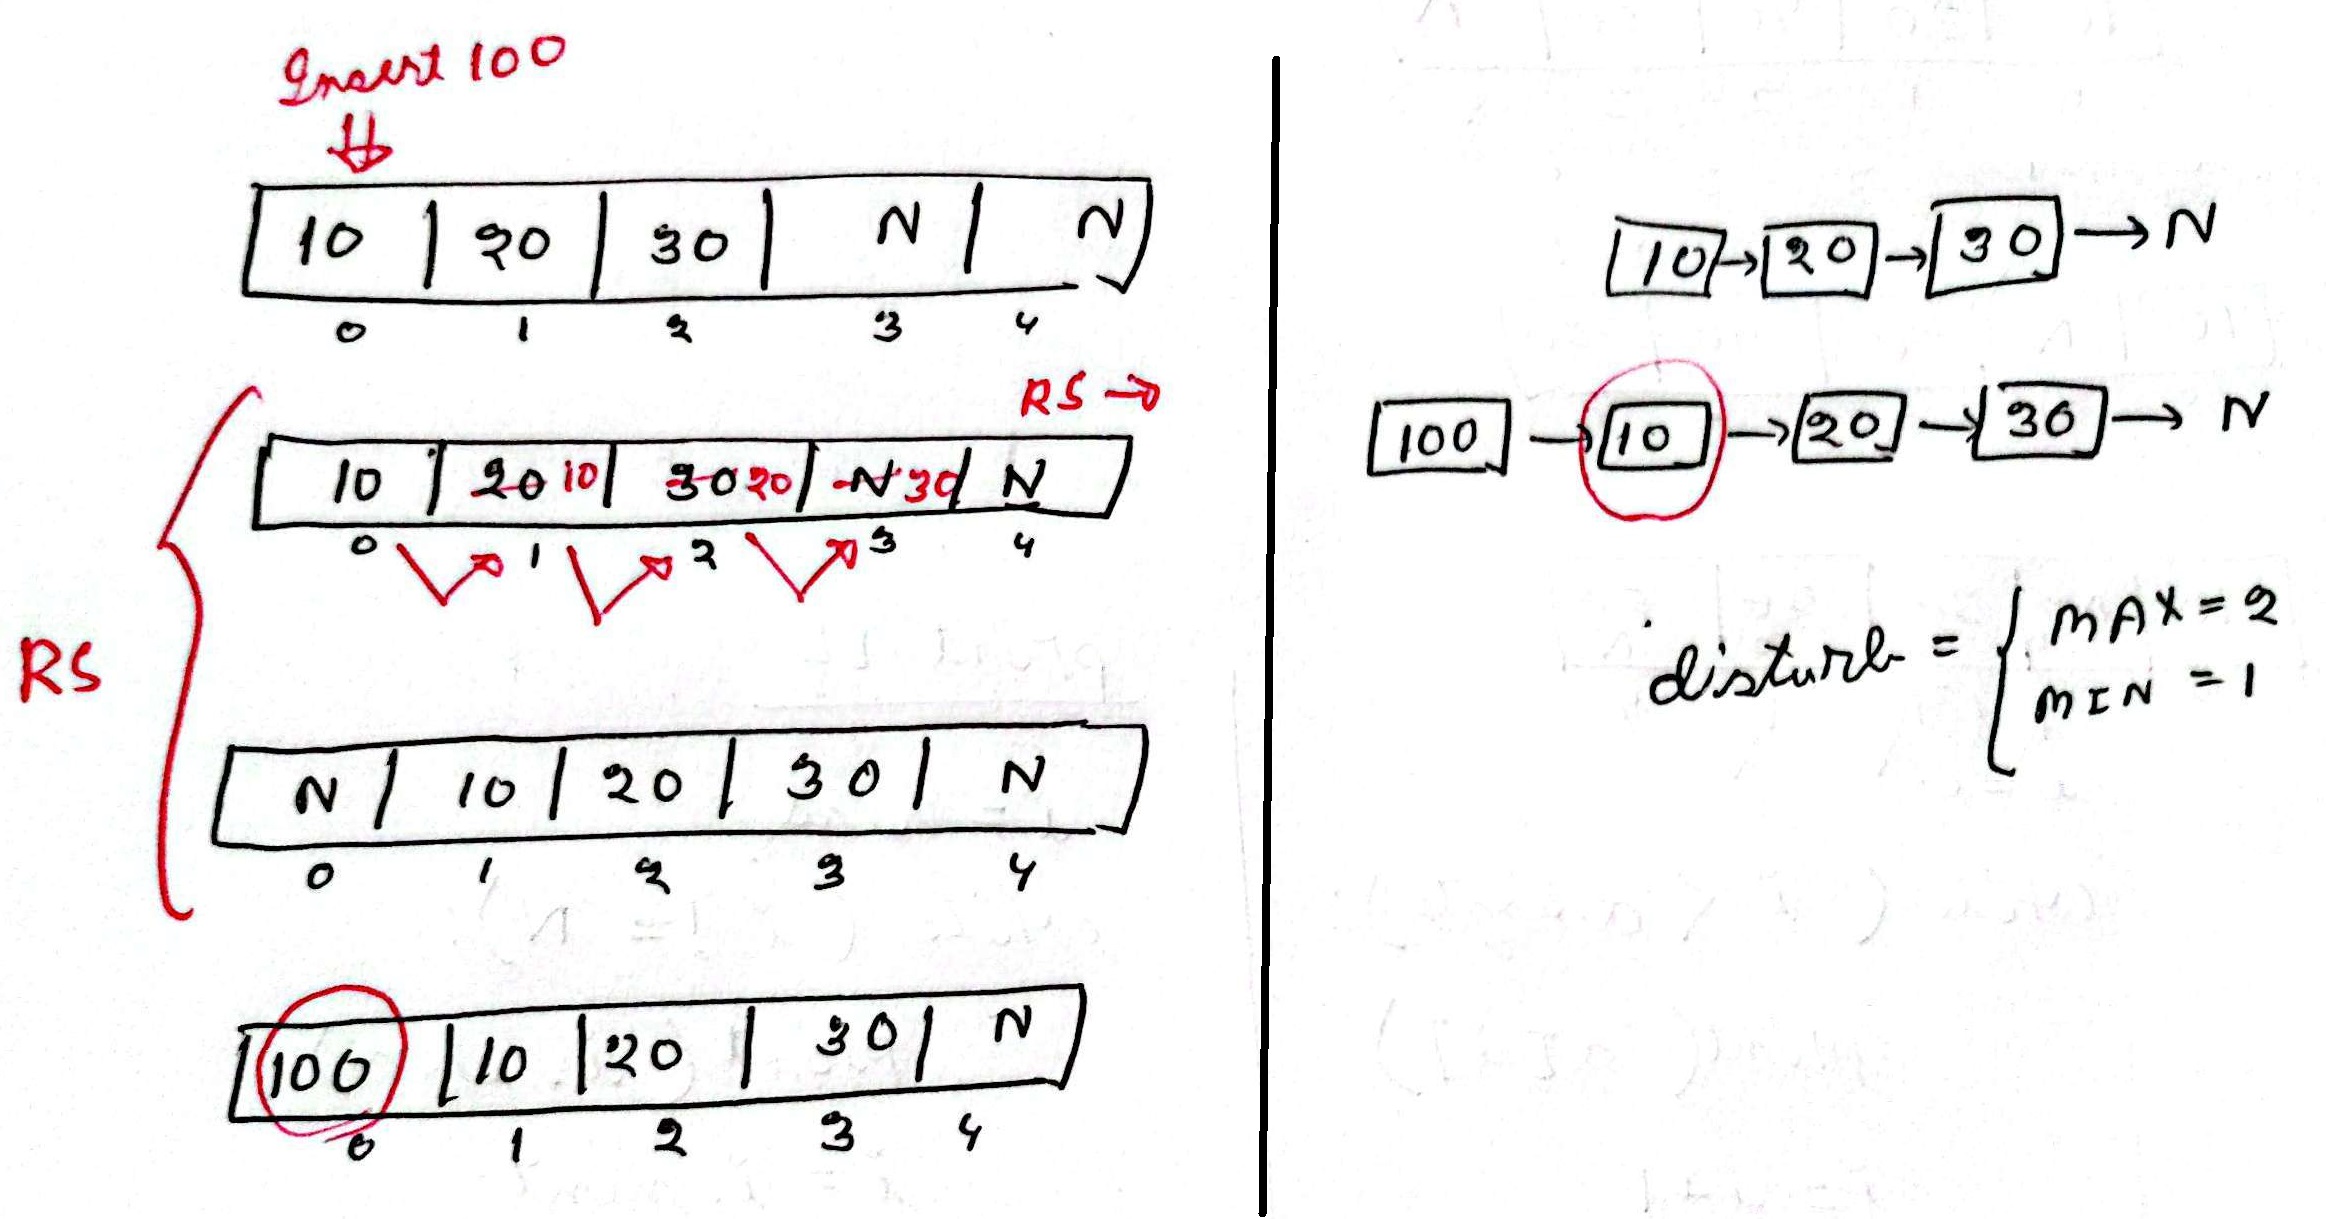 Insert 100
10 20 30 N N
0 1 2 3 4
RS →
10 20 10 30 20 N 30 N
0 1 2 3 4
RS
N 10 20 30 N
0 1 2 3 4
100 10 20 30 N
0 1 2 3 4
10 → 20 → 30 → N
100 → 10 → 20 → 30 → N
disturb = { MAX = 2
MIN = 1